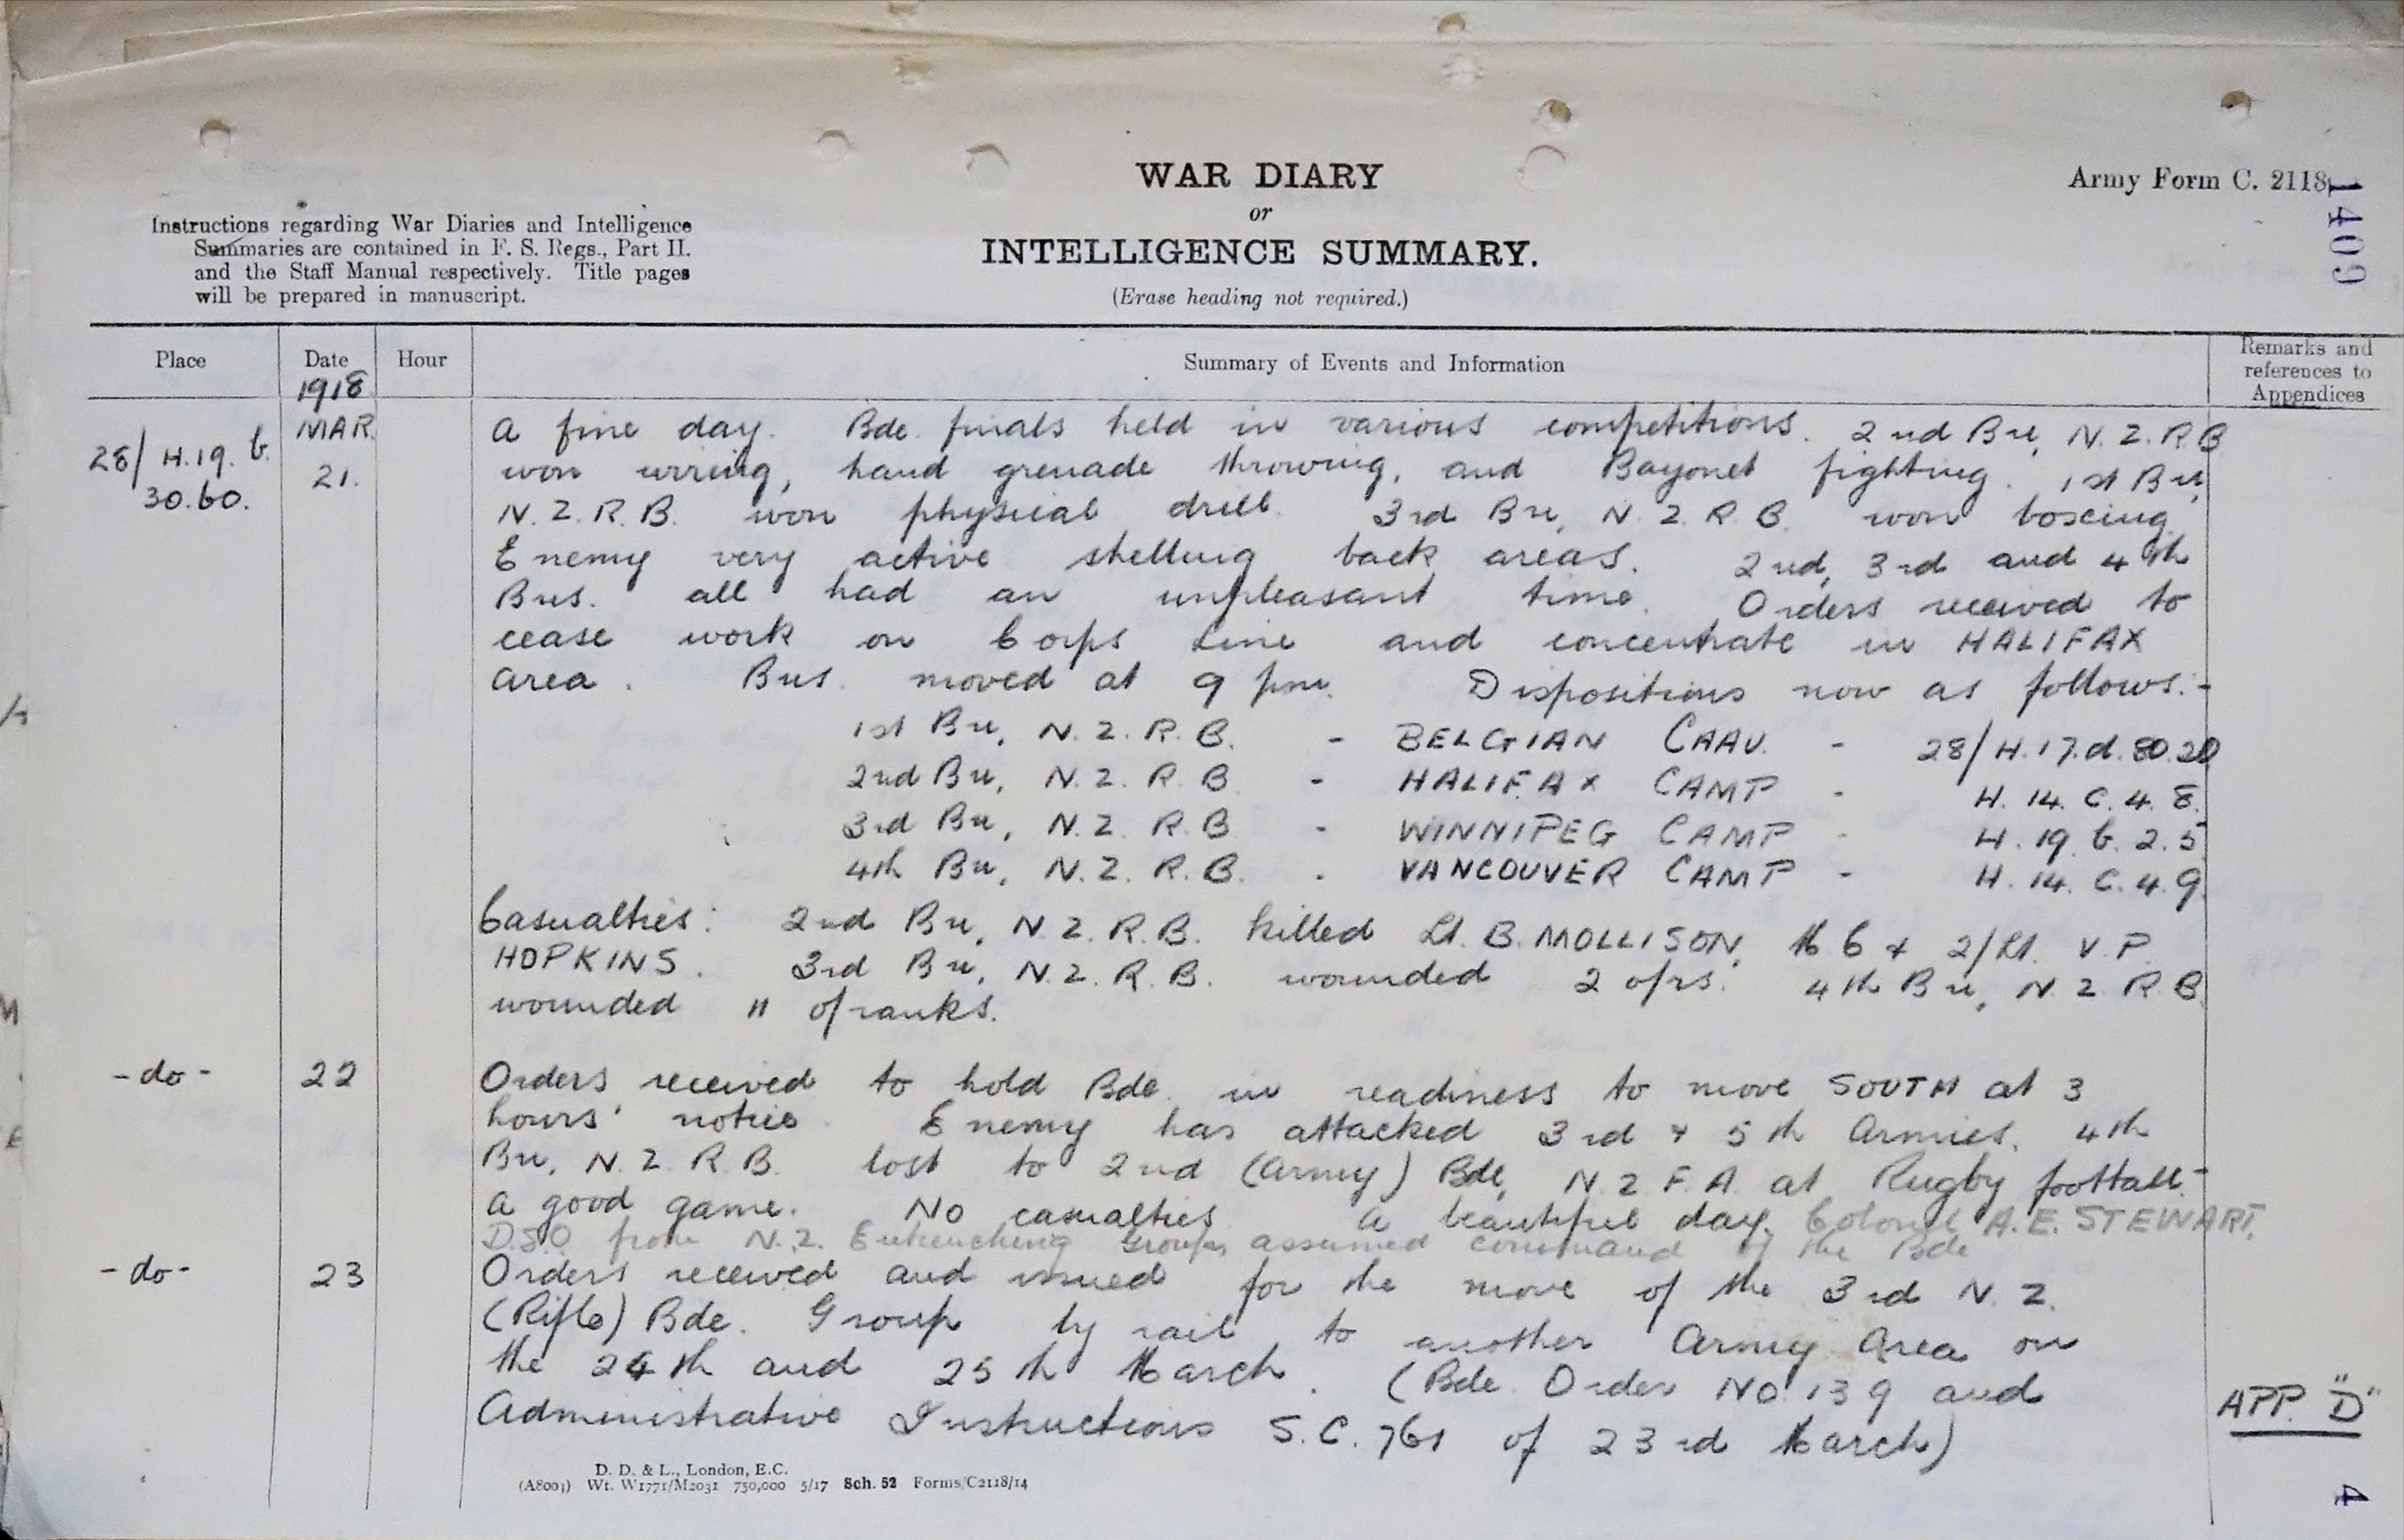 WAR DIARY
or
INTELLIGENCE SUMMARY.
(Erase heading not required.)
Army Form C. 2118.
1409
Instructions regarding War Diaries and Intelligence
Summaries are contained in F. S. Regs., Part II.
and the Staff Manual respectively. Title pages
will be prepared in manuscript.
Place Date Hour Summary of Events and Information Remarks and references to Appendices
1918
MAR.
28/H.19.b.
30.60.
21.
A fine day. Bde. finals held in various competitions. 2nd Bn, N.Z.R.B
won wiring, hand grenade throwing, and Bayonet fighting. 1st Bn,
N.Z.R.B. won physical drill. 3rd Bn, N.Z.R.B. won boxing.
Enemy very active shelling back areas. 2nd, 3rd and 4th
Bns. all had an unpleasant time. Orders received to
cease work on Corps Line and concentrate in HALIFAX
area. Bns. moved at 9 pm. Dispositions now as follows:-
1st Bn, N.Z.R.B. - BELGIAN - 28/H.17.d.80.20
2nd Bn, N.Z.R.B - HALIFAX CAMP - H.14.C.4.8.
3rd Bn, N.Z.R.B - WINNIPEG CAMP - H.19.b.2.5
4th Bn, N.Z.R.B. - VANCOUVER CAMP - H.14.C.4.9.
Casualties: 2nd Bn, N.Z.R.B. killed Lt. B. MOLLISON, M C + 2/Lt. V.P.
HOPKINS. 3rd Bn, N.Z.R.B. wounded 2 o/rs. 4th Bn, N.Z.R.B.
wounded 11 o/ranks.
-do- 22 Orders received to hold Bde. in readiness to move SOUTH at 3
hours' notice. Enemy has attacked 3rd + 5th Armies. 4th
Bn, N.Z.R.B. lost to 2nd (Army) Bde, N.Z.F.A. at Rugby football -
a good game. No casualties. A beautiful day. Colonel A.E. STEWART,
D.S.O from N.Z. Entrenching Group, assumed command of the Bde
-do- 23 Orders received and issued for the move of the 3rd N.Z.
(Rifle) Bde. Group by rail to another Army Area on
the 24th and 25th March. (Bde. Order No. 139 and
Administrative Instructions S.C. 761 of 23rd March)
APP. "D"
D. D. & L., London, E.C.
(A8001) Wt. W1771/M2031 750,000 5/17 Sch. 52 Forms/C2118/14
4